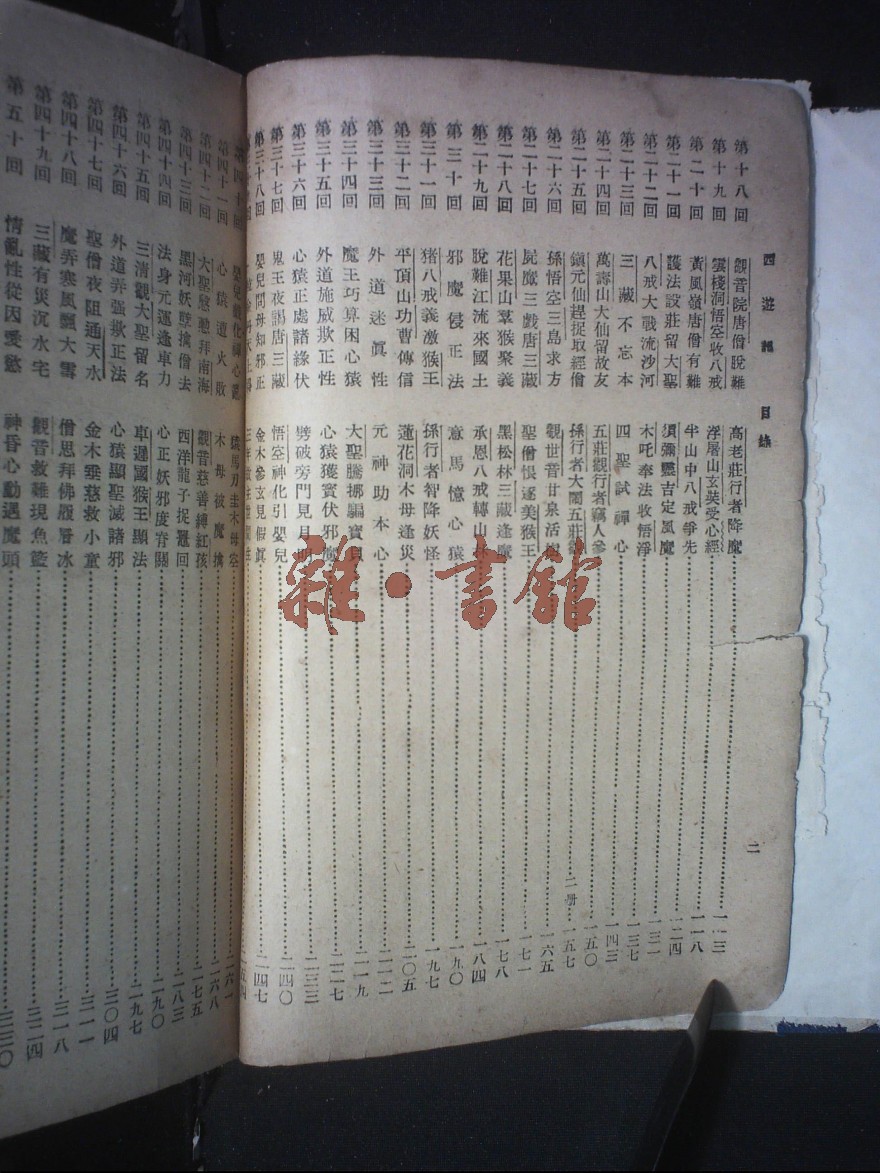 西遊記 目錄 二
第十八回 觀音院唐僧脫難 高老莊行者降魔 一一三
第十九回 雲棧洞悟空收八戒 浮屠山玄奘受心經 一一八
第二十回 黃風嶺唐僧有難 半山中八戒爭先 一二四
第二十一回 護法設莊留大聖 須彌靈吉定風魔 一三一
第二十二回 八戒大戰流沙河 木吒奉法收悟淨 一三七
第二十三回 三藏不忘本 四聖試禪心 一四三
第二十四回 萬壽山大仙留故友 五莊觀行者竊人參 一五〇
第二十五回 鎮元仙趕捉取經僧 孫行者大鬧五莊觀 二册 一五七
第二十六回 孫悟空三島求方 觀世音甘泉活樹 一六五
第二十七回 屍魔三戲唐三藏 聖僧恨逐美猴王 一七一
第二十八回 花果山羣猴聚義 黑松林三藏逢魔 一七八
第二十九回 脫難江流來國土 承恩八戒轉山林 一八四
第三十回 邪魔侵正法 意馬憶心猿 一九〇
第三十一回 猪八戒義激猴王 孫行者智降妖怪 一九七
第三十二回 平頂山功曹傳信 蓮花洞木母逢災 二〇五
第三十三回 外道迷眞性 元神助本心 二一二
第三十四回 魔王巧算困心猿 大聖騰挪騙寶貝 二一九
第三十五回 外道施威欺正性 心猿獲寶伏邪魔 二二七
第三十六回 心猿正處諸緣伏 劈破旁門見月明 二三三
第三十七回 鬼王夜謁唐三藏 悟空神化引嬰兒 二四〇
第三十八回 嬰兒問母知邪正 金木參玄見假眞 二四七
嬰兒戲化禪心亂 猿馬刀圭木母空 二六一
第四十一回 心猿遭火敗 木母被魔擒 二六八
第四十二回 大聖慇懃拜南海 觀音慈善縛紅孩 二七五
第四十三回 黑河妖孽擒僧去 西洋龍子捉鼉回 二八三
第四十四回 法身元運逢車力 心正妖邪度脊關 二九〇
第四十五回 三淸觀大聖留名 車遲國猴王顯法 二九七
第四十六回 外道弄强欺正法 心猿顯聖滅諸邪 三〇四
第四十七回 聖僧夜阻通天水 金木垂慈救小童 三一一
第四十八回 魔弄寒風飄大雪 僧思拜佛履層冰 三一八
第四十九回 三藏有災沉水宅 觀音救難現魚籃 三二四
第五十回 情亂性從因愛慾 神昏心動遇魔頭 三三〇
雜·書館